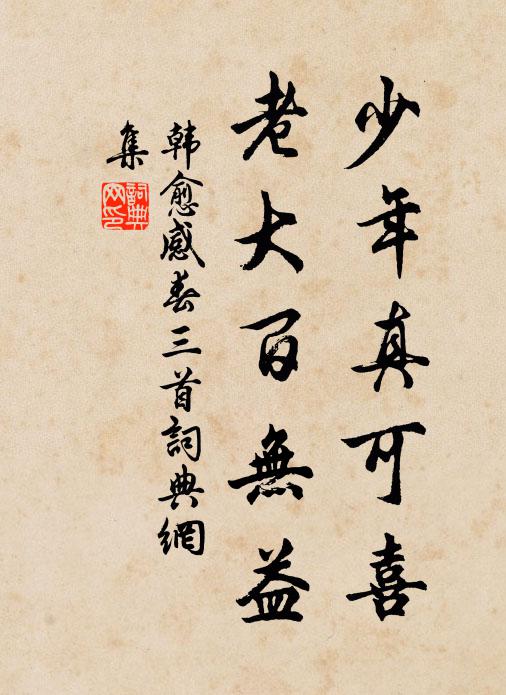 少年真可喜
老大百無益
韓愈感春三首詞典網
集
詞典網印